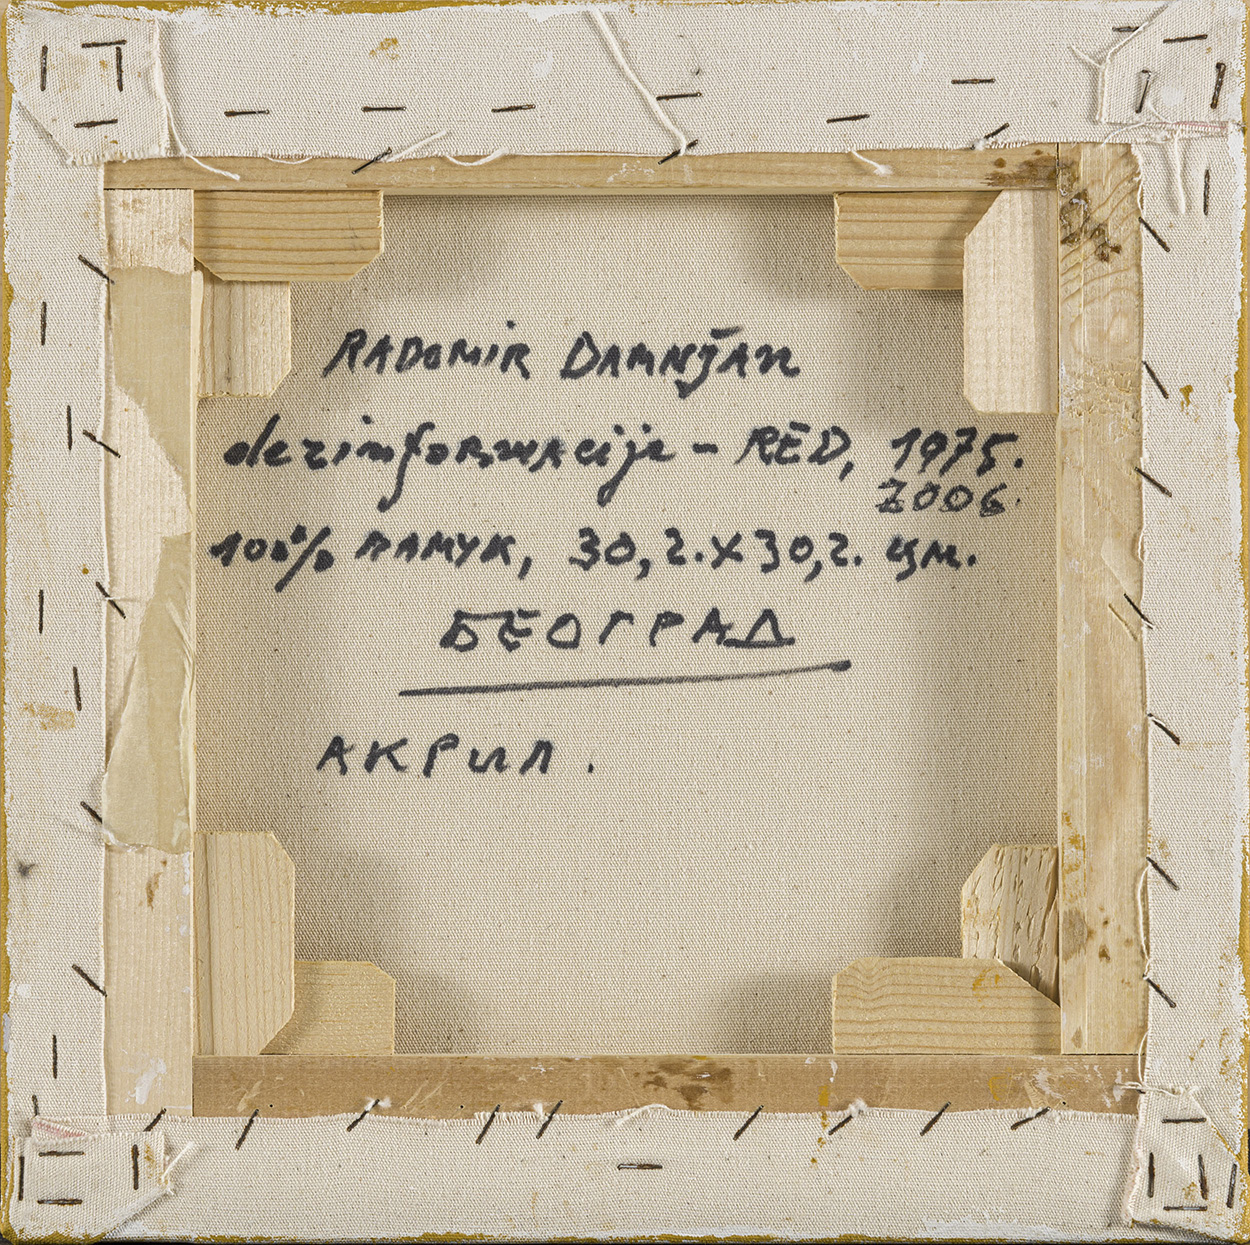 RADOMIR DAMNJAN
dezinformacija - RED, 1975.
2006.
100% ПАМУК, 30,2. X 30,2. цм.
БЕОГРАД
АКРИЛ.